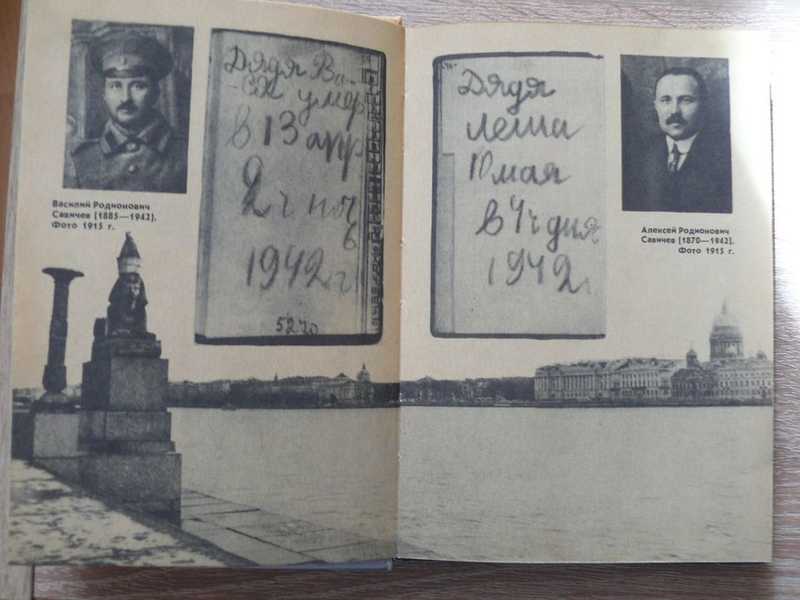 Василий Родионович
Савичев [1885—1942].
Фото 1915 г.
Дядя Ва-
-ся умер
в 13 апр
2 ч ноч
6
1942 г
5240
Дядя
Леша
10 мая
в 4 ч дня
1942 г
Алексей Родионович
Савичев [1870—1942].
Фото 1915 г.